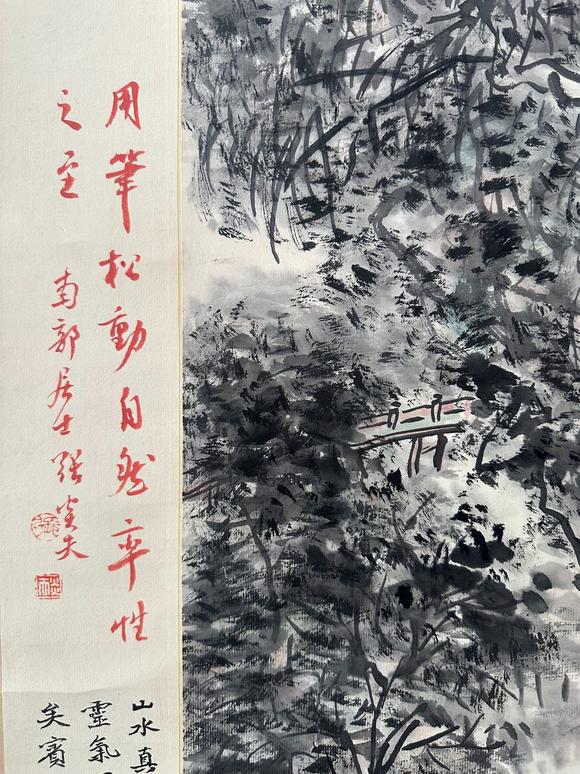 用筆松動自然率性
之至
南郭居士張炎夫
山水真
靈氣
矣賓